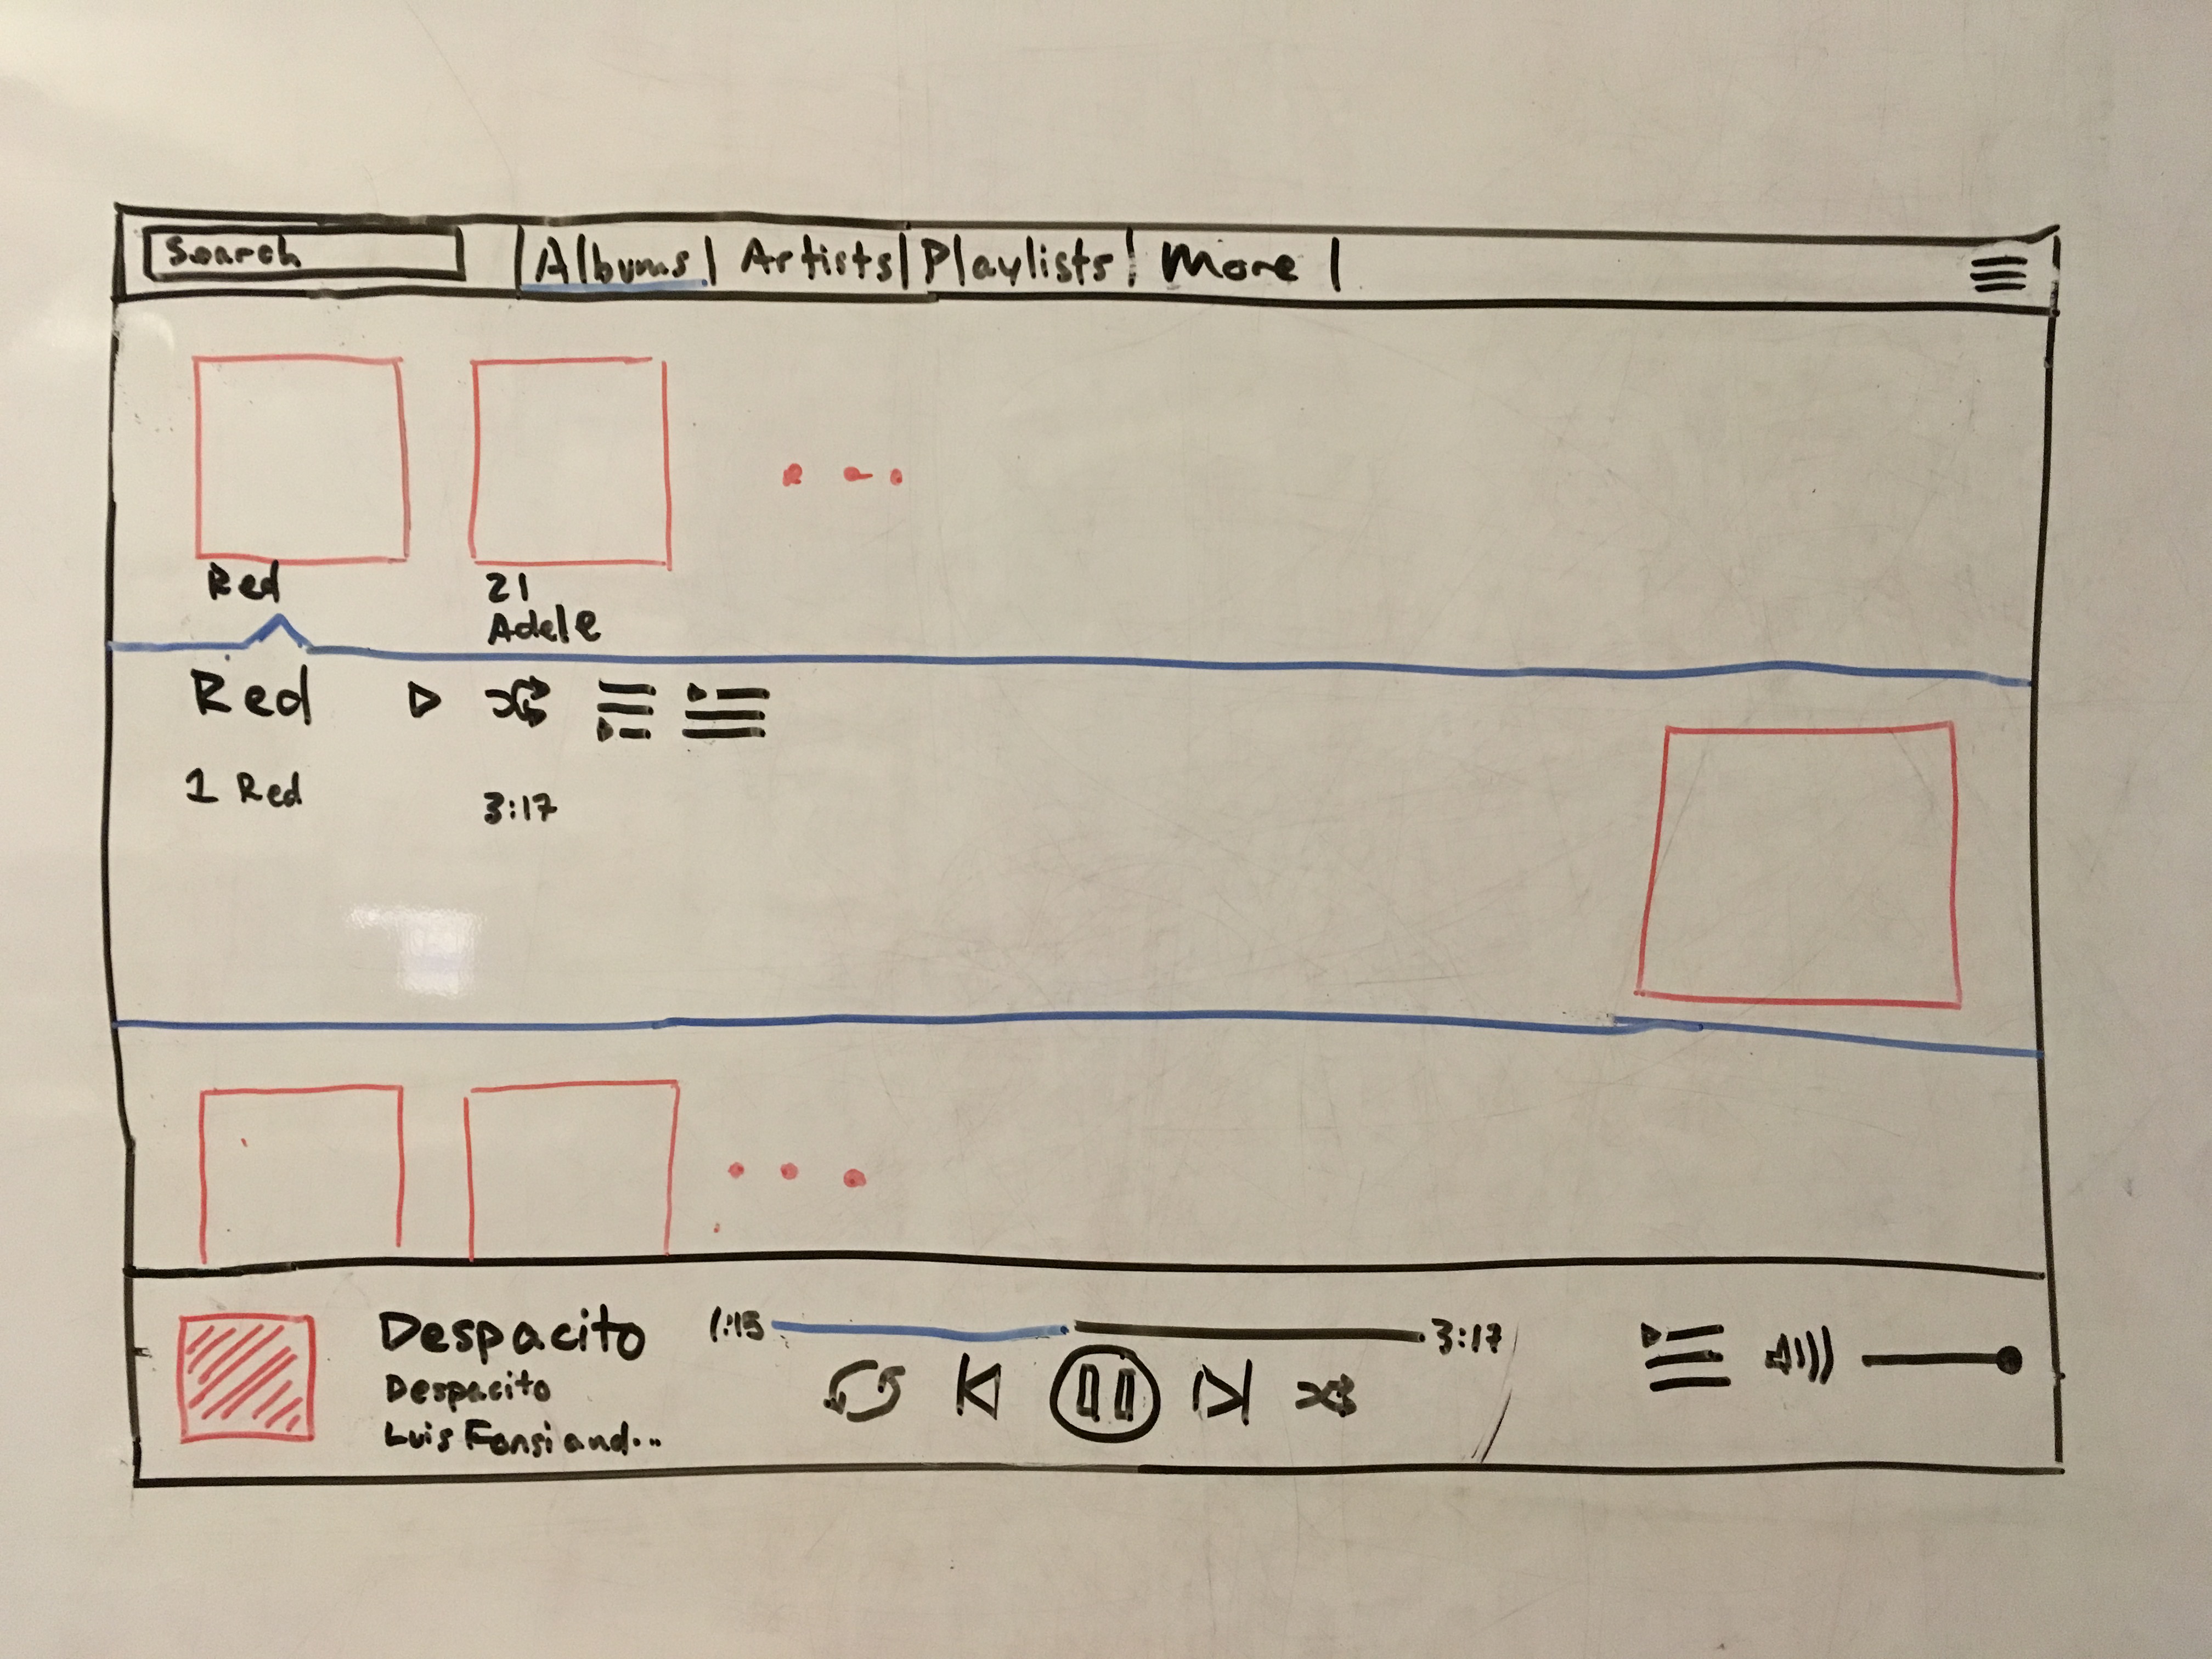 Search
Albums
Artists
Playlists
More
Red
21
Adele
Red
1 Red 3:17
Despacito
Despacito
Luis Fonsi and...
1:15
3:17